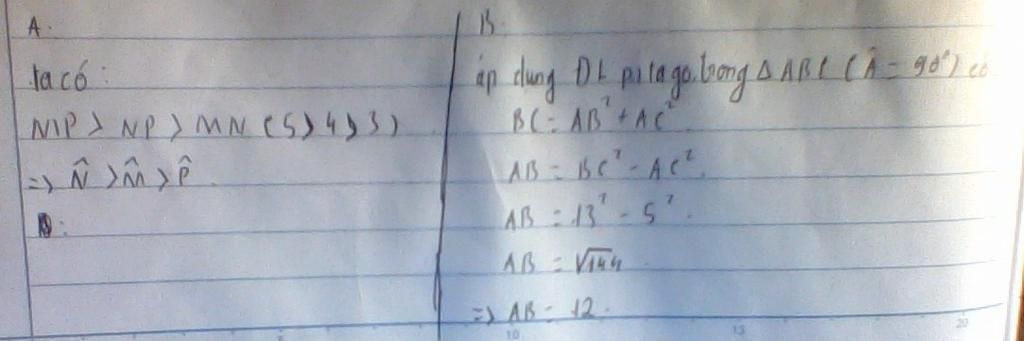 A.
ta có:
MP > NP > MN (5 > 4 > 3)
=> N̂ > M̂ > P̂
B.
áp dung ĐL pitago trong Δ ABC (Â = 90°) có
BC = AB² + AC²
AB = BC² - AC².
AB = 13² - 5².
AB = √144
=> AB = 12.
10
15
20